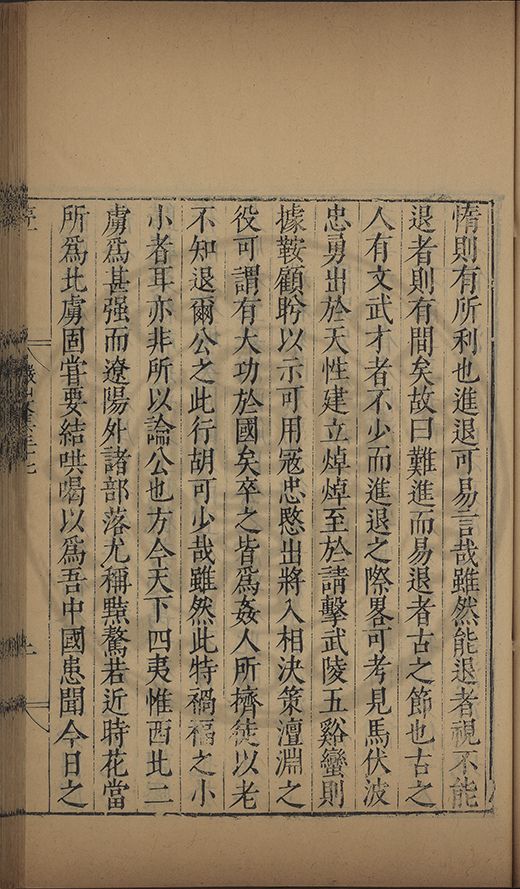 惰則有所利也進退可易言哉雖然能退者視不能
退者則有間矣故曰難進而易退者古之節也古之
人有文武才者不少而進退之際畧可考見馬伏波
忠勇出於天性建立焯焯至於請擊武陵五谿蠻則
據鞍顧盻以示可用冦忠愍出將入相決策澶淵之
役可謂有大功於國矣卒之皆爲姦人所擠徒以老
不知退爾公之此行胡可少哉雖然此特禍福之小
小者耳亦非所以論公也方今天下四夷惟西北二
虜爲甚强而遼陽外諸部落尤稱黠驁若近時花當
所爲北虜固嘗要結哄喝以爲吾中國患聞今日之